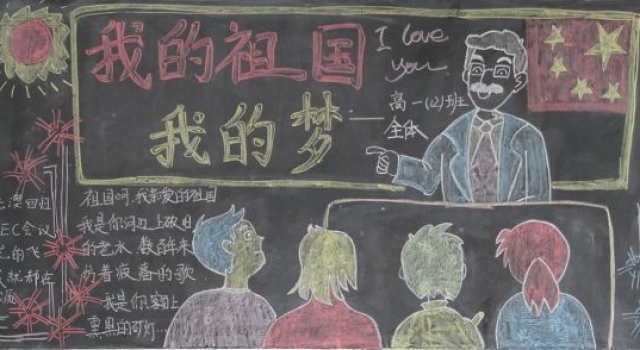 我的祖国
I love
you
我的梦
高一(12)班
全体
澳回归
EC会议
的飞
就都在
祖国呵,我亲爱的祖国
我是你河边上破旧
的老水 数百年来
纺着疲惫的歌
我是你额上
熏黑的矿灯...